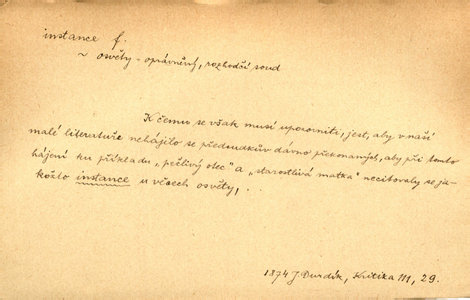 instance f.
~ osvěty - oprávněný, rozhodčí soud
K čemu se však musí upozorniti, jest, aby v naší
malé literatuře nehájilo se předsudkův dávno překonaných, aby při tomto
hájení ku příkladu „pečlivý otec" a „starostlivá matka" necitovaly se ja-
kožto instance u věcech osvěty, .
1874 J. Durdík, Kritika 111, 29.